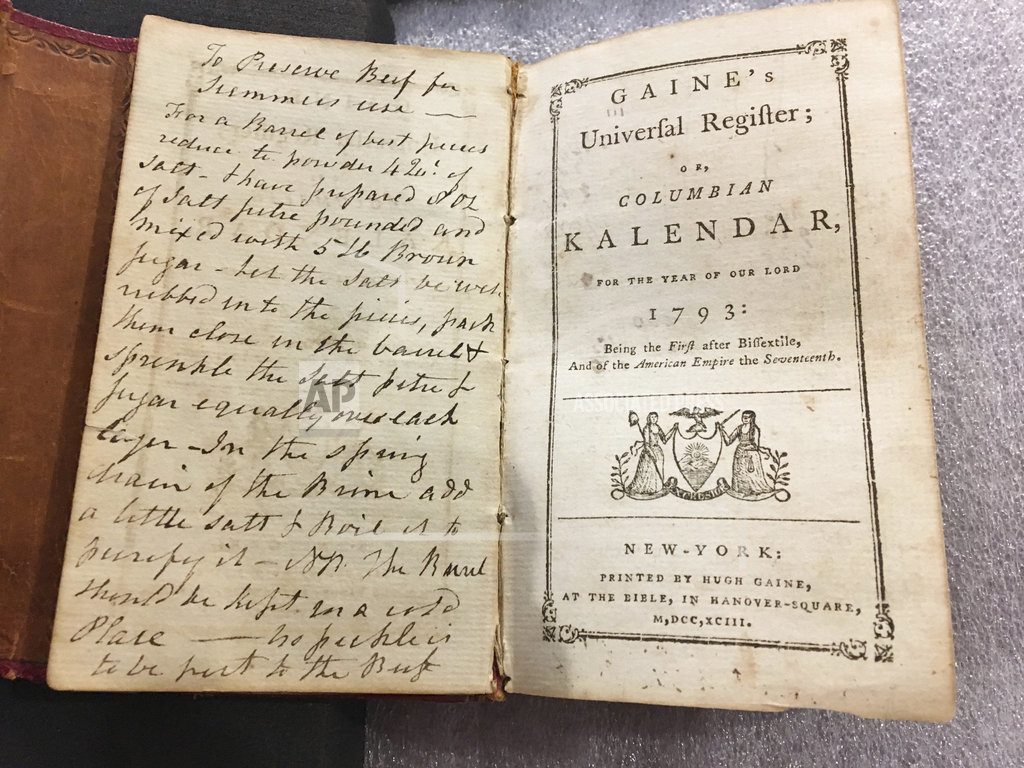 To Preserve Beef for
Summers use —
For a Barrel of best pieces
reduce to powder 4 of
Salt - & have prepared 8 oz
of Salt petre pounded and
mixed with 5 lb Brown
Sugar - let the Salt be well
rubbed into the pieces, pack
them close in the barrel &
sprinkle the Salt petre &
Sugar equally over each
layer - In the spring
drain of the Brine add
a little salt & Boil it to
purify it - NB. The Barrel
should be kept in a cold
Place — no pickle is
to be put to the Beef
AP
GAINE's
Univerſal Regiſter;
OR,
COLUMBIAN
KALENDAR,
FOR THE YEAR OF OUR LORD
1793:
Being the Firſt after Biſſextile,
And of the American Empire the Seventeenth.
ASSOCIATED PRESS
EXCELSIOR
NEW-YORK:
PRINTED BY HUGH GAINE,
AT THE BIBLE, IN HANOVER-SQUARE,
M,DCC,XCIII.